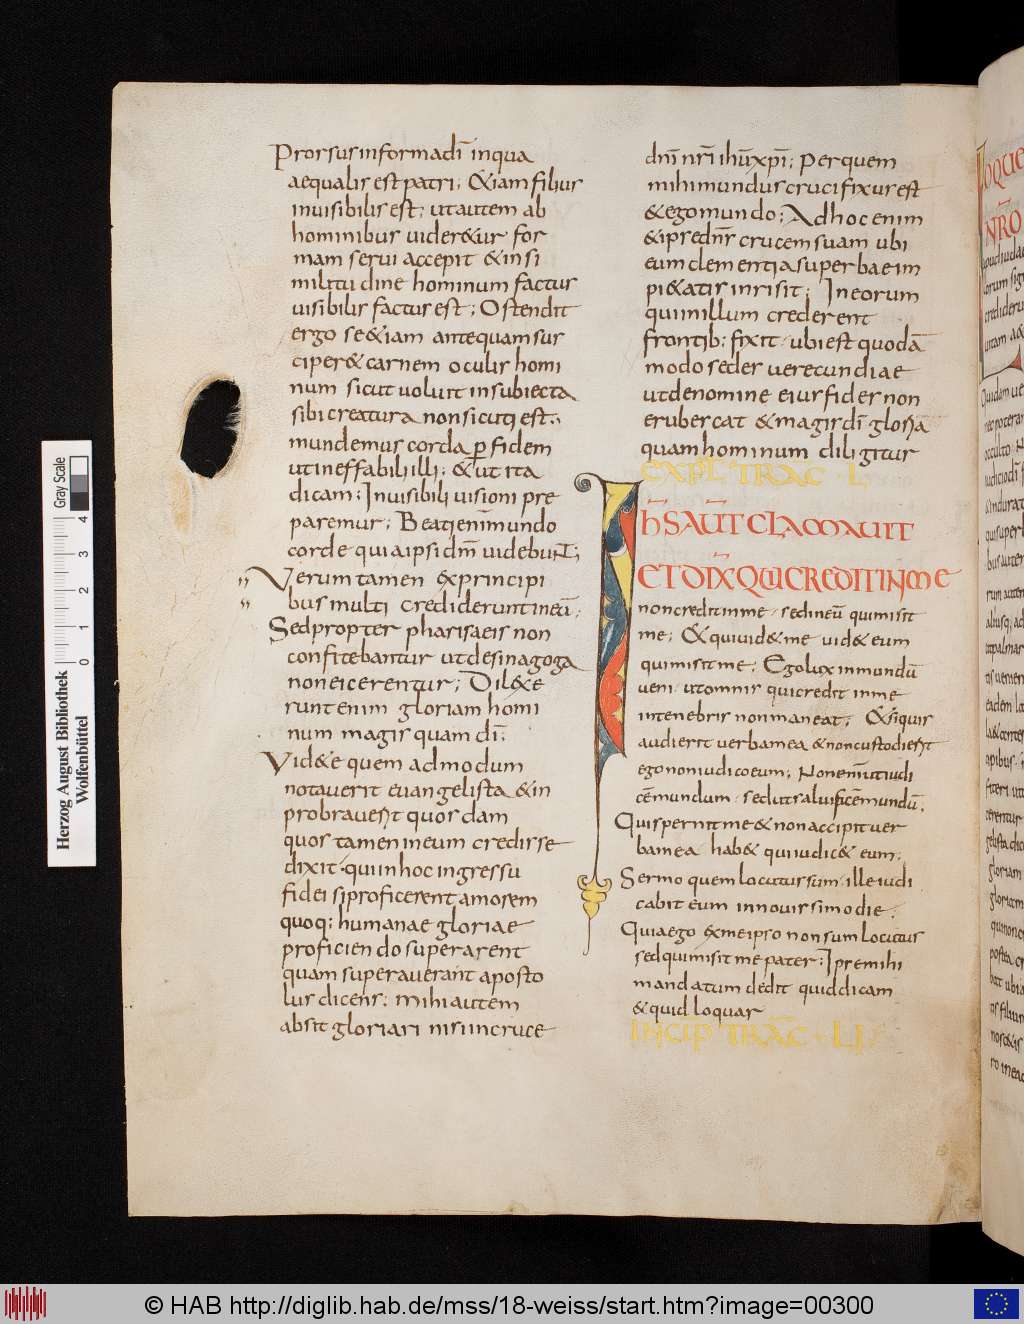 Prorsus informa dī in qua
aequalis est patri; &iam filius
inuisibilis est; ut autem ab
hominibus uider&ur for
mam serui accepit & in si
militudine hominum factus
uisibilis factus est; Ostendit
ergo se &iam antequam sus
ciper& carnem oculis homi
num sicut uoluit in subiecta
sibi creatura non sicuti est;
mundemus corda p fidem
ut ineffabili illi; & ut ita
dicam; Inuisibili uisioni pre
paremur; Beati enim mundo
corde quia ipsi dm̄ uidebunt;
Verum tamen & ex principi
bus multi crediderunt in eū;
Sed propter pharisaeis non
confitebantur ut de sinagoga
non eicerentur; Dilexe
runt enim gloriam homi
num magis quam dī;
Vid&e quem ad modum
notauerit euangelista & in
probrauerit quosdam
quos tamen in eum credisse
dixit; qui in hoc ingressu
fidei si proficerent amorem
quoq; humanae gloriae
proficiendo superarent
quam superauerant aposto
lus dicens; mihi autem
absit gloriari nisi in cruce
dnī nrī ihū xpī; per quem
mihi mundus crucifixus est
& ego mundo; Ad hoc enim
& ipse dns̄ crucem suam ubi
eum dementia superbae im
pi&atis inrisit; In eorum
qui in illum crederent
frontib; fixit; ubi est quodā
modo sedes uerecundiae
ut de nomine eius fides non
erubescat & magis dī gloriā
quam hominum diligitur
EXPL TRAC · L
IHS AUT CLAMAUIT
ET DIX QUI CREDIT IN ME
non credit in me sed in eū qui misit
me; & qui uid& me uid& eum
qui misit me; Ego lux in mundū
ueni ut omnis qui credit in me
in tenebris non maneat; & si quis
audierit uerba mea & non custodierit
ego non iudico eum; Non enim ut iudi
cē mundum sed ut saluificē mundū;
Qui spernit me & non accipit uer
ba mea hab& qui iudic& eum;
Sermo quem locutus sum ille iudi
cabit eum in nouissimo die;
Quia ego ex me ipso non sum locutus
sed qui misit me pater; Ipse mihi
mandatum dedit quid dicam
& quid loquar
INCIP TRAC · LI
Herzog August Bibliothek
Wolfenbüttel
0 1 2 3 4
Gray Scale
© HAB http://diglib.hab.de/mss/18-weiss/start.htm?image=00300